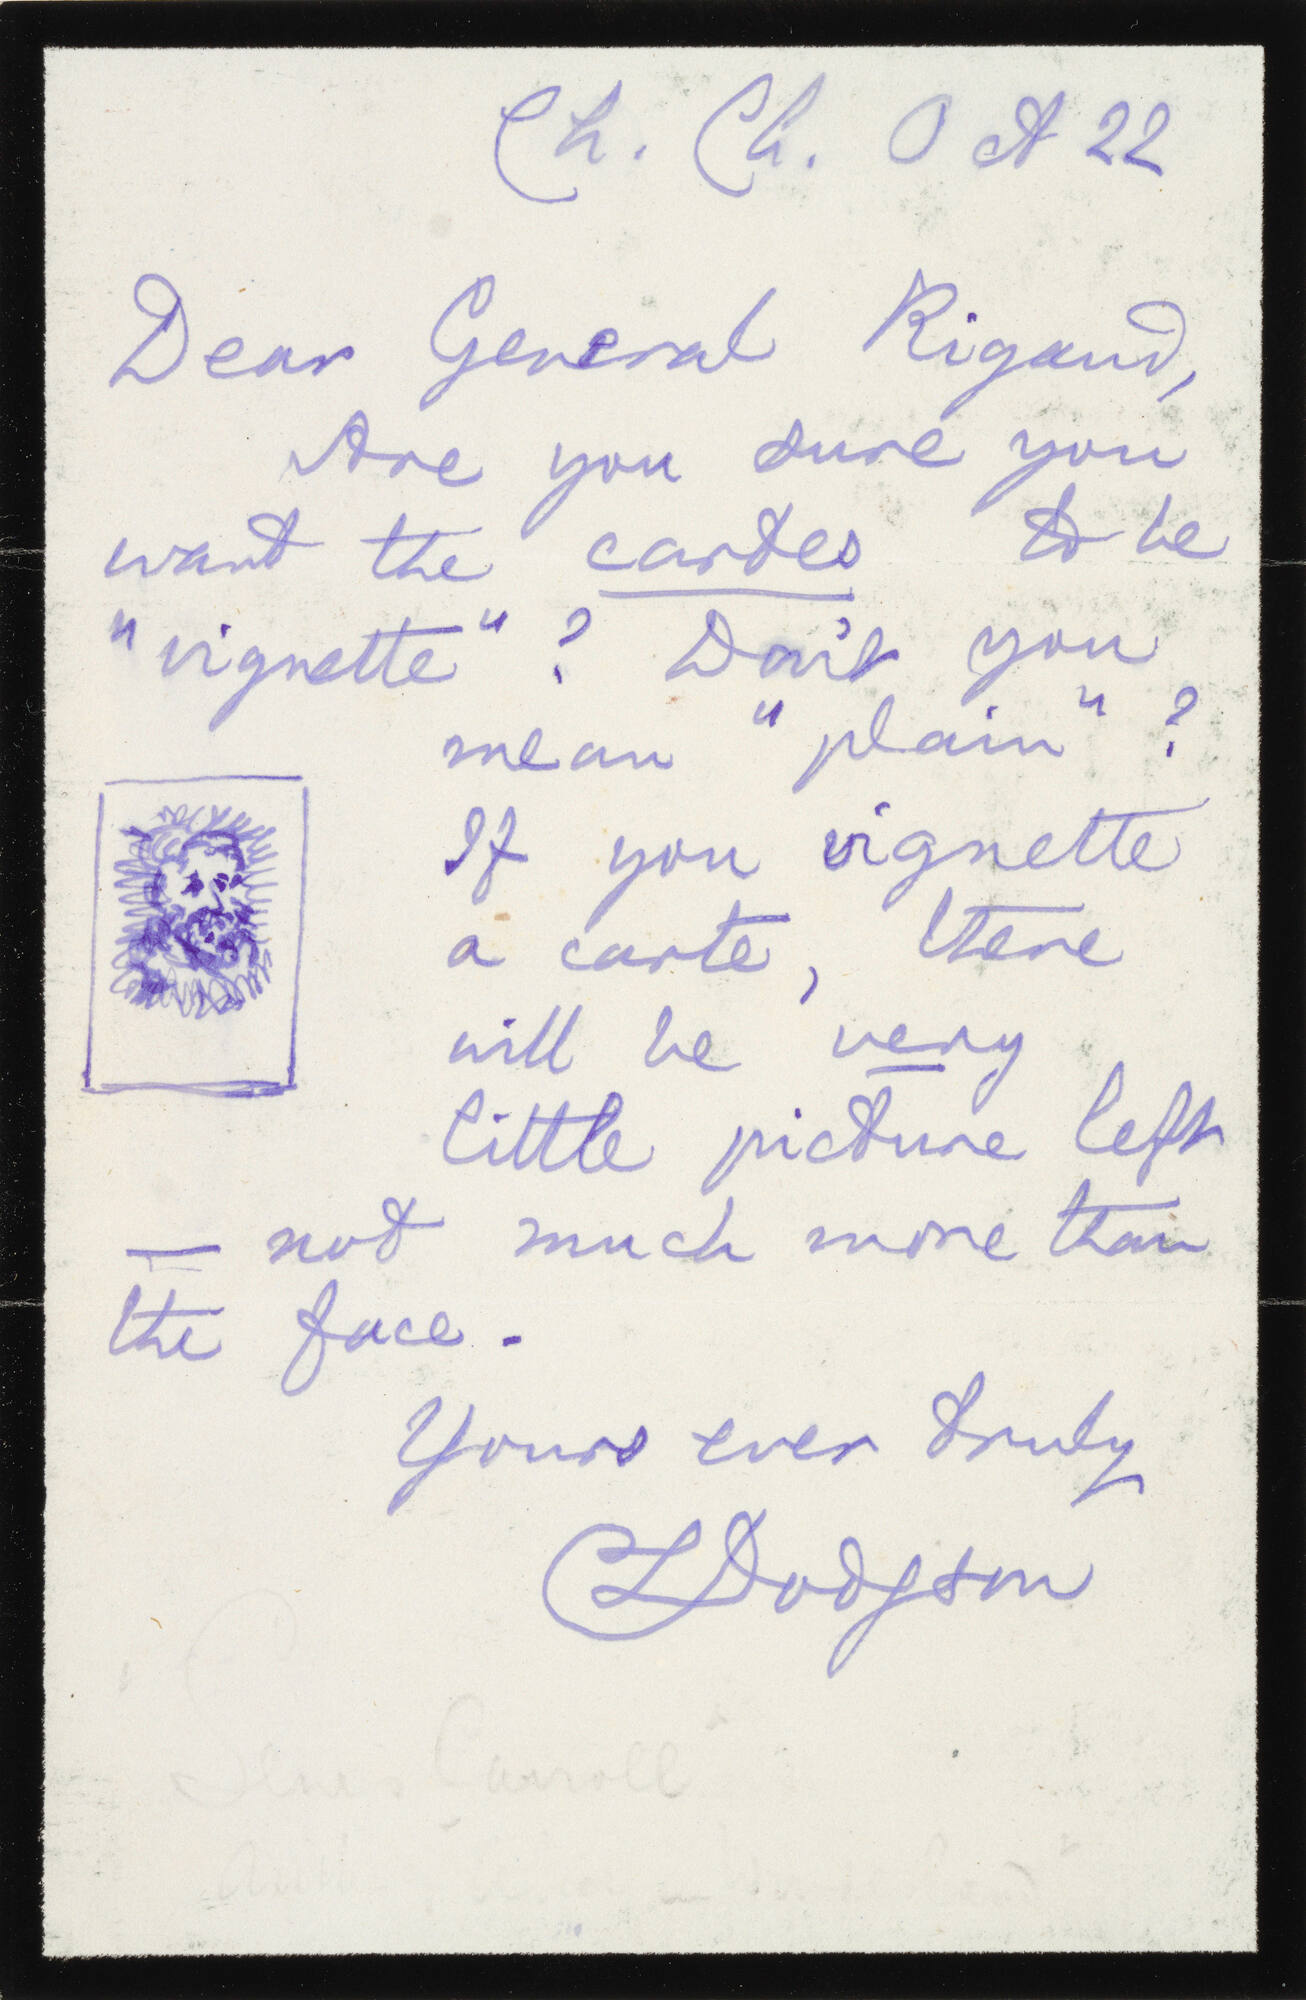 Ch. Ch. Oct 22
Dear General Rigaud,
Are you sure you
want the cartes to be
"vignette"? Don't you
mean "plain"?
If you vignette
a carte, there
will be very
little picture left
— not much more than
the face.
Yours ever truly
CLDodgson
Lewis Carroll"